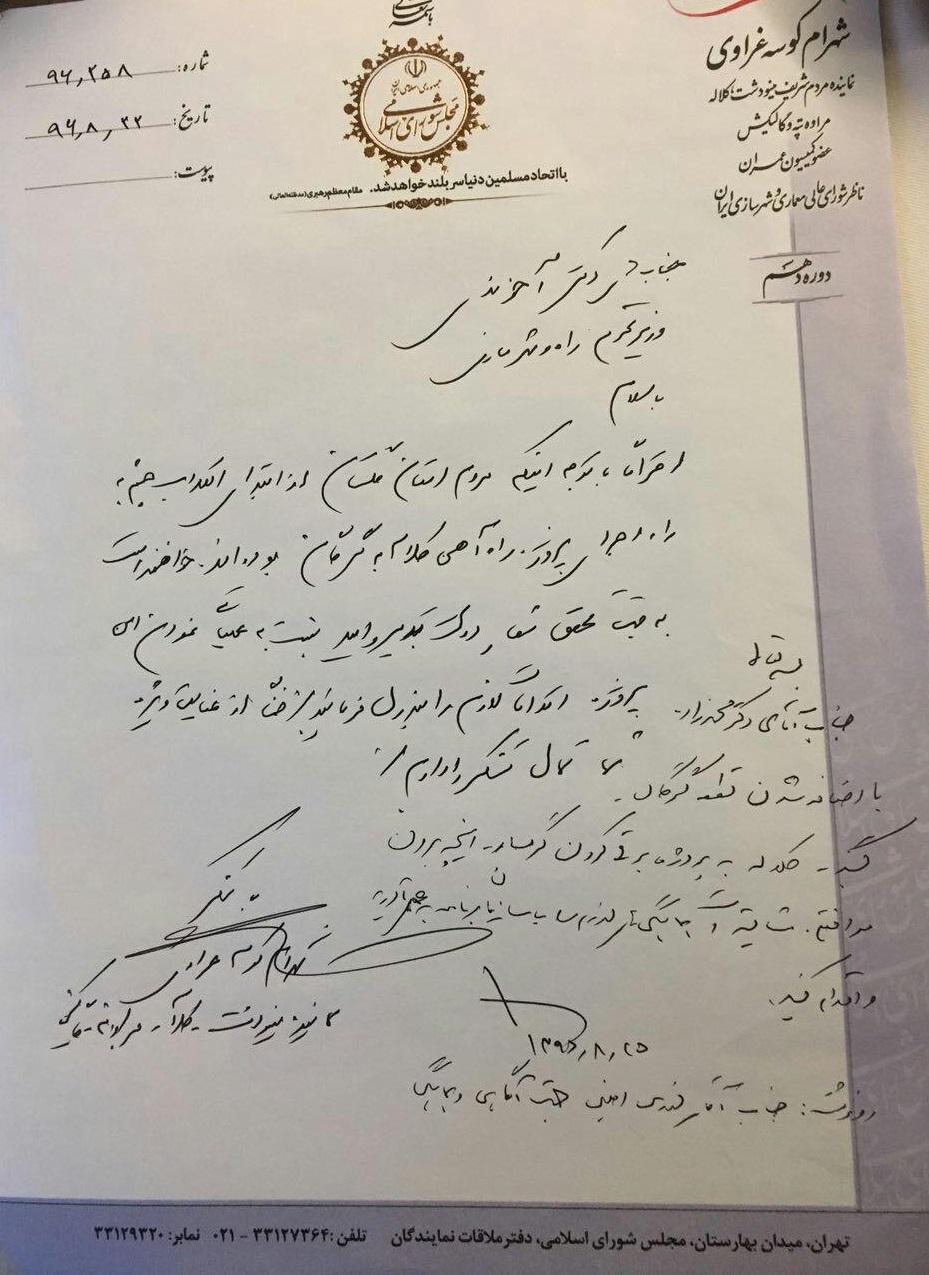 باسمه تعالی
شماره: ۹۶٫۲۵۸
تاریخ: ۹۶٫۸٫۲۲
پیوست:
جمهوری اسلامی ایران
مجلس شورای اسلامی
با اتحاد مسلمین دنیا سربلند خواهد شد. مقام معظم رهبری (مدظله‌العالی)
شهرام کوسه غراوی
نماینده مردم شریف مینودشت، کلاله
مراوه تپه و گالیکش
عضو کمیسیون عمران
ناظر شورای عالی معماری و شهرسازی ایران
دوره دهم
جناب آقای دکتر آخوندی
وزیر محترم راه و شهرسازی
با سلام
احتراماً با توجه اینکه مردم استان گلستان از ابتدای انقلاب چشم به
راه اجرای پروژه راه آهن کلاله به گرگان بوده‌اند. خواهشمند است
به جهت تحقق شعار دولت تدبیر و امید نسبت به عملیاتی نمودن این
پروژه اقدامات لازم را مبذول فرمائید. از عنایت ویژه
شما کمال تشکر را دارم
شهرام کوسه غراوی
نماینده مینودشت - کلاله - مراوه تپه - گالیکش
جناب آقای دکتر
با اضافه شدن قطعه گرگان -
گنبد - کلاله به پروژه برقی کردن گرمسار - اینچه برون
موافقم. هماهنگی‌های لازم را با سازمان برنامه به عمل آورید
و اقدام کنید.
۱۳۹۶٫۸٫۲۵
رونوشت: جناب آقای امینی جهت آگاهی و هماهنگی
تهران، میدان بهارستان، مجلس شورای اسلامی، دفتر ملاقات نمایندگان تلفن: ۳۳۱۲۷۳۶۴ - ۰۲۱ نمابر: ۳۳۱۲۹۳۲۰